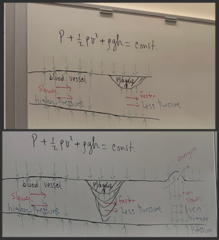 P + ½ρv² + ρgh = const.
blood vessel
Plaque
slower
faster
higher pressure
less pressure
P + ½ρv² + ρgh = const.
blood vessel
Plaque
slower
faster
higher pressure
less pressure